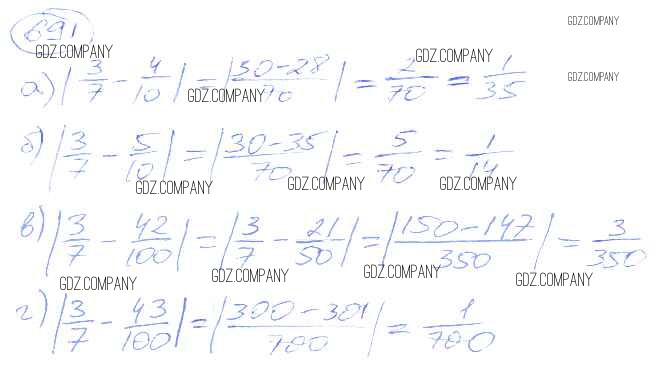 691
GDZ.COMPANY
GDZ.COMPANY
GDZ.COMPANY
GDZ.COMPANY
а) |3/7 - 4/10| = |30-28/70| = 2/70 = 1/35
GDZ.COMPANY
б) |3/7 - 5/10| = |30-35/70| = 5/70 = 1/14
GDZ.COMPANY
GDZ.COMPANY
GDZ.COMPANY
в) |3/7 - 42/100| = |3/7 - 21/50| = |150-147/350| = 3/350
GDZ.COMPANY
GDZ.COMPANY
GDZ.COMPANY
GDZ.COMPANY
г) |3/7 - 43/100| = |300-301/700| = 1/700